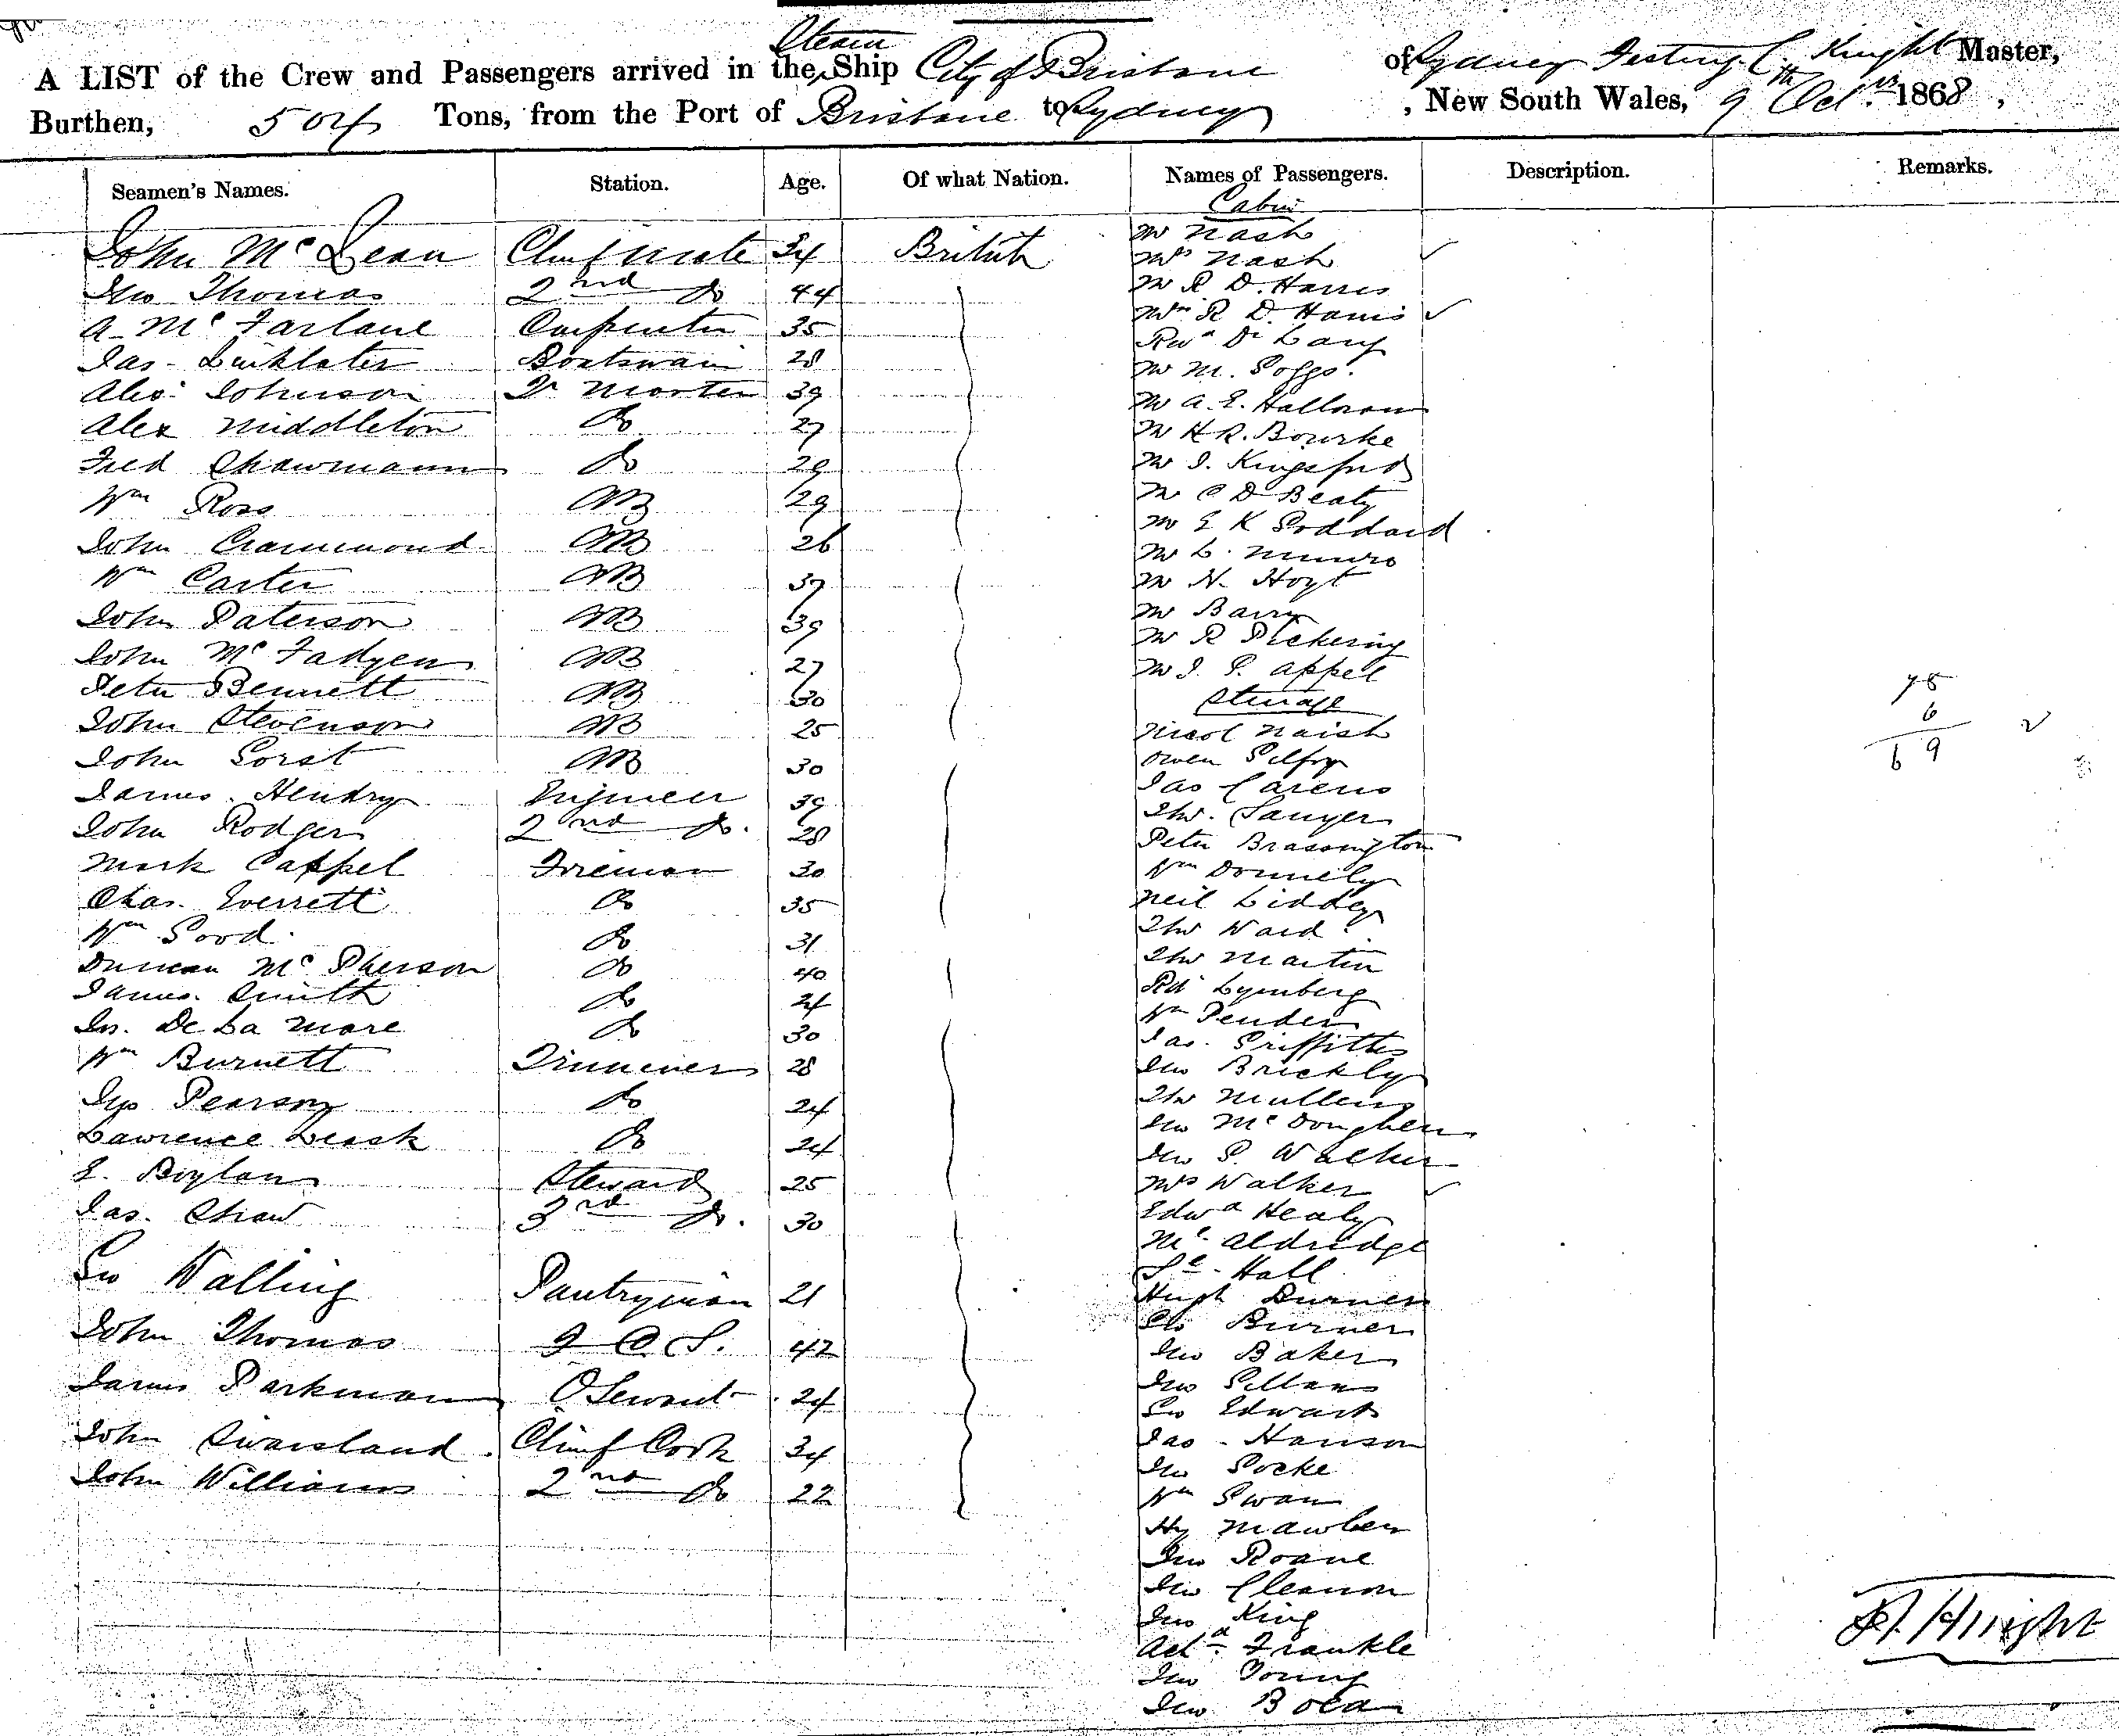 Steam
A LIST of the Crew and Passengers arrived in the Ship City of Brisbane of Sydney Knight Master,
Burthen, 504 Tons, from the Port of Brisbane to Sydney, New South Wales, 9th Octr. 1868,
Seamen's Names. Station. Age. Of what Nation. Names of Passengers. Description. Remarks.
John McLean Chief Mate 34 British
Jno Thomas 2nd Do 44
A McFarlane Carpenter 35
Jas. Linklater Boatswain 28
Alex. Johnson 39
Alex Middleton Do 27
Fred Do 29
Wm Ross AB 29
John Crammond AB 26
Wm Carter AB 37
John Paterson AB 39
John McFadyen AB 27
Peter Bennett AB 30
John Stevenson AB 25
John Gorst AB 30
James Hendry Engineer 39
John Rodger 2nd Do. 28
Mark Cappel Fireman 30
Chas. Everrett Do 35
Wm Good Do 31
Duncan McPherson Do 40
James Smith Do 24
Jn. De La Mare Do 30
Wm Burnett Trimmer 28
Jno Pearson Do 24
Lawrence Leask Do 24
E. Boylan Steward 25
Jas. Shaw 3rd Do. 30
Geo Walling Pantryman 21
John Thomas 42
James Parkman 24
John Swaisland Chief Cook 34
John Williams 2nd Do 22
Cabin
Mr Nash
Mrs Nash
Mr R D. Harris
Mrs R D. Harris
Revd Dr Lang
Mr M. Goggs.
Mr A. E. Halloran
Mr H R. Bourke
Mr J. Kingsford
Mr C D Beaty
Mr E K Goddard
Mr L. Munro
Mr N. Hoyt
Mr Barry
Mr R Pickering
Mr J. G. Appel
Steerage
Nicol Naish
Owen Gilfoy
Jas Carens
Thos. Sawyer
Peter Brassington
Wm Donnely
Neil Liddey
Thos Ward
Thos Martin
Rd Lymberg
Wm Pender
Jas. Griffiths
Jno Brickly
Thos Mullens
Jno
Jno G. Walker
Mrs Walker
Edwd Healy
Mc Aldridge
Hall
Hugh Durner
Geo Burner
Jno Baker
Jno Gillans
Geo Edwards
Jas. Hanson
Jno Locke
Wm Swan
Hy Mawber
Jno Roane
Jno Gleanon
Jno King
Frankle
Jno Young
Jno
75
6
69
Knight